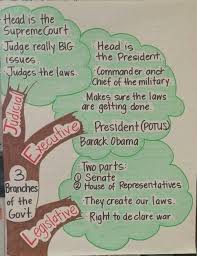 Head is the
Supreme Court.
Judge really BIG
issues
Judges the laws.
Judicial
Head is
the President.
Commander and
Chief of the military.
Makes sure the laws
are getting done.
President (POTUS)
Barack Obama
Executive
Two parts:
① Senate
② House of Representatives
They create our laws.
Right to declare war.
Legislative
3
Branches
of the
Gov't.